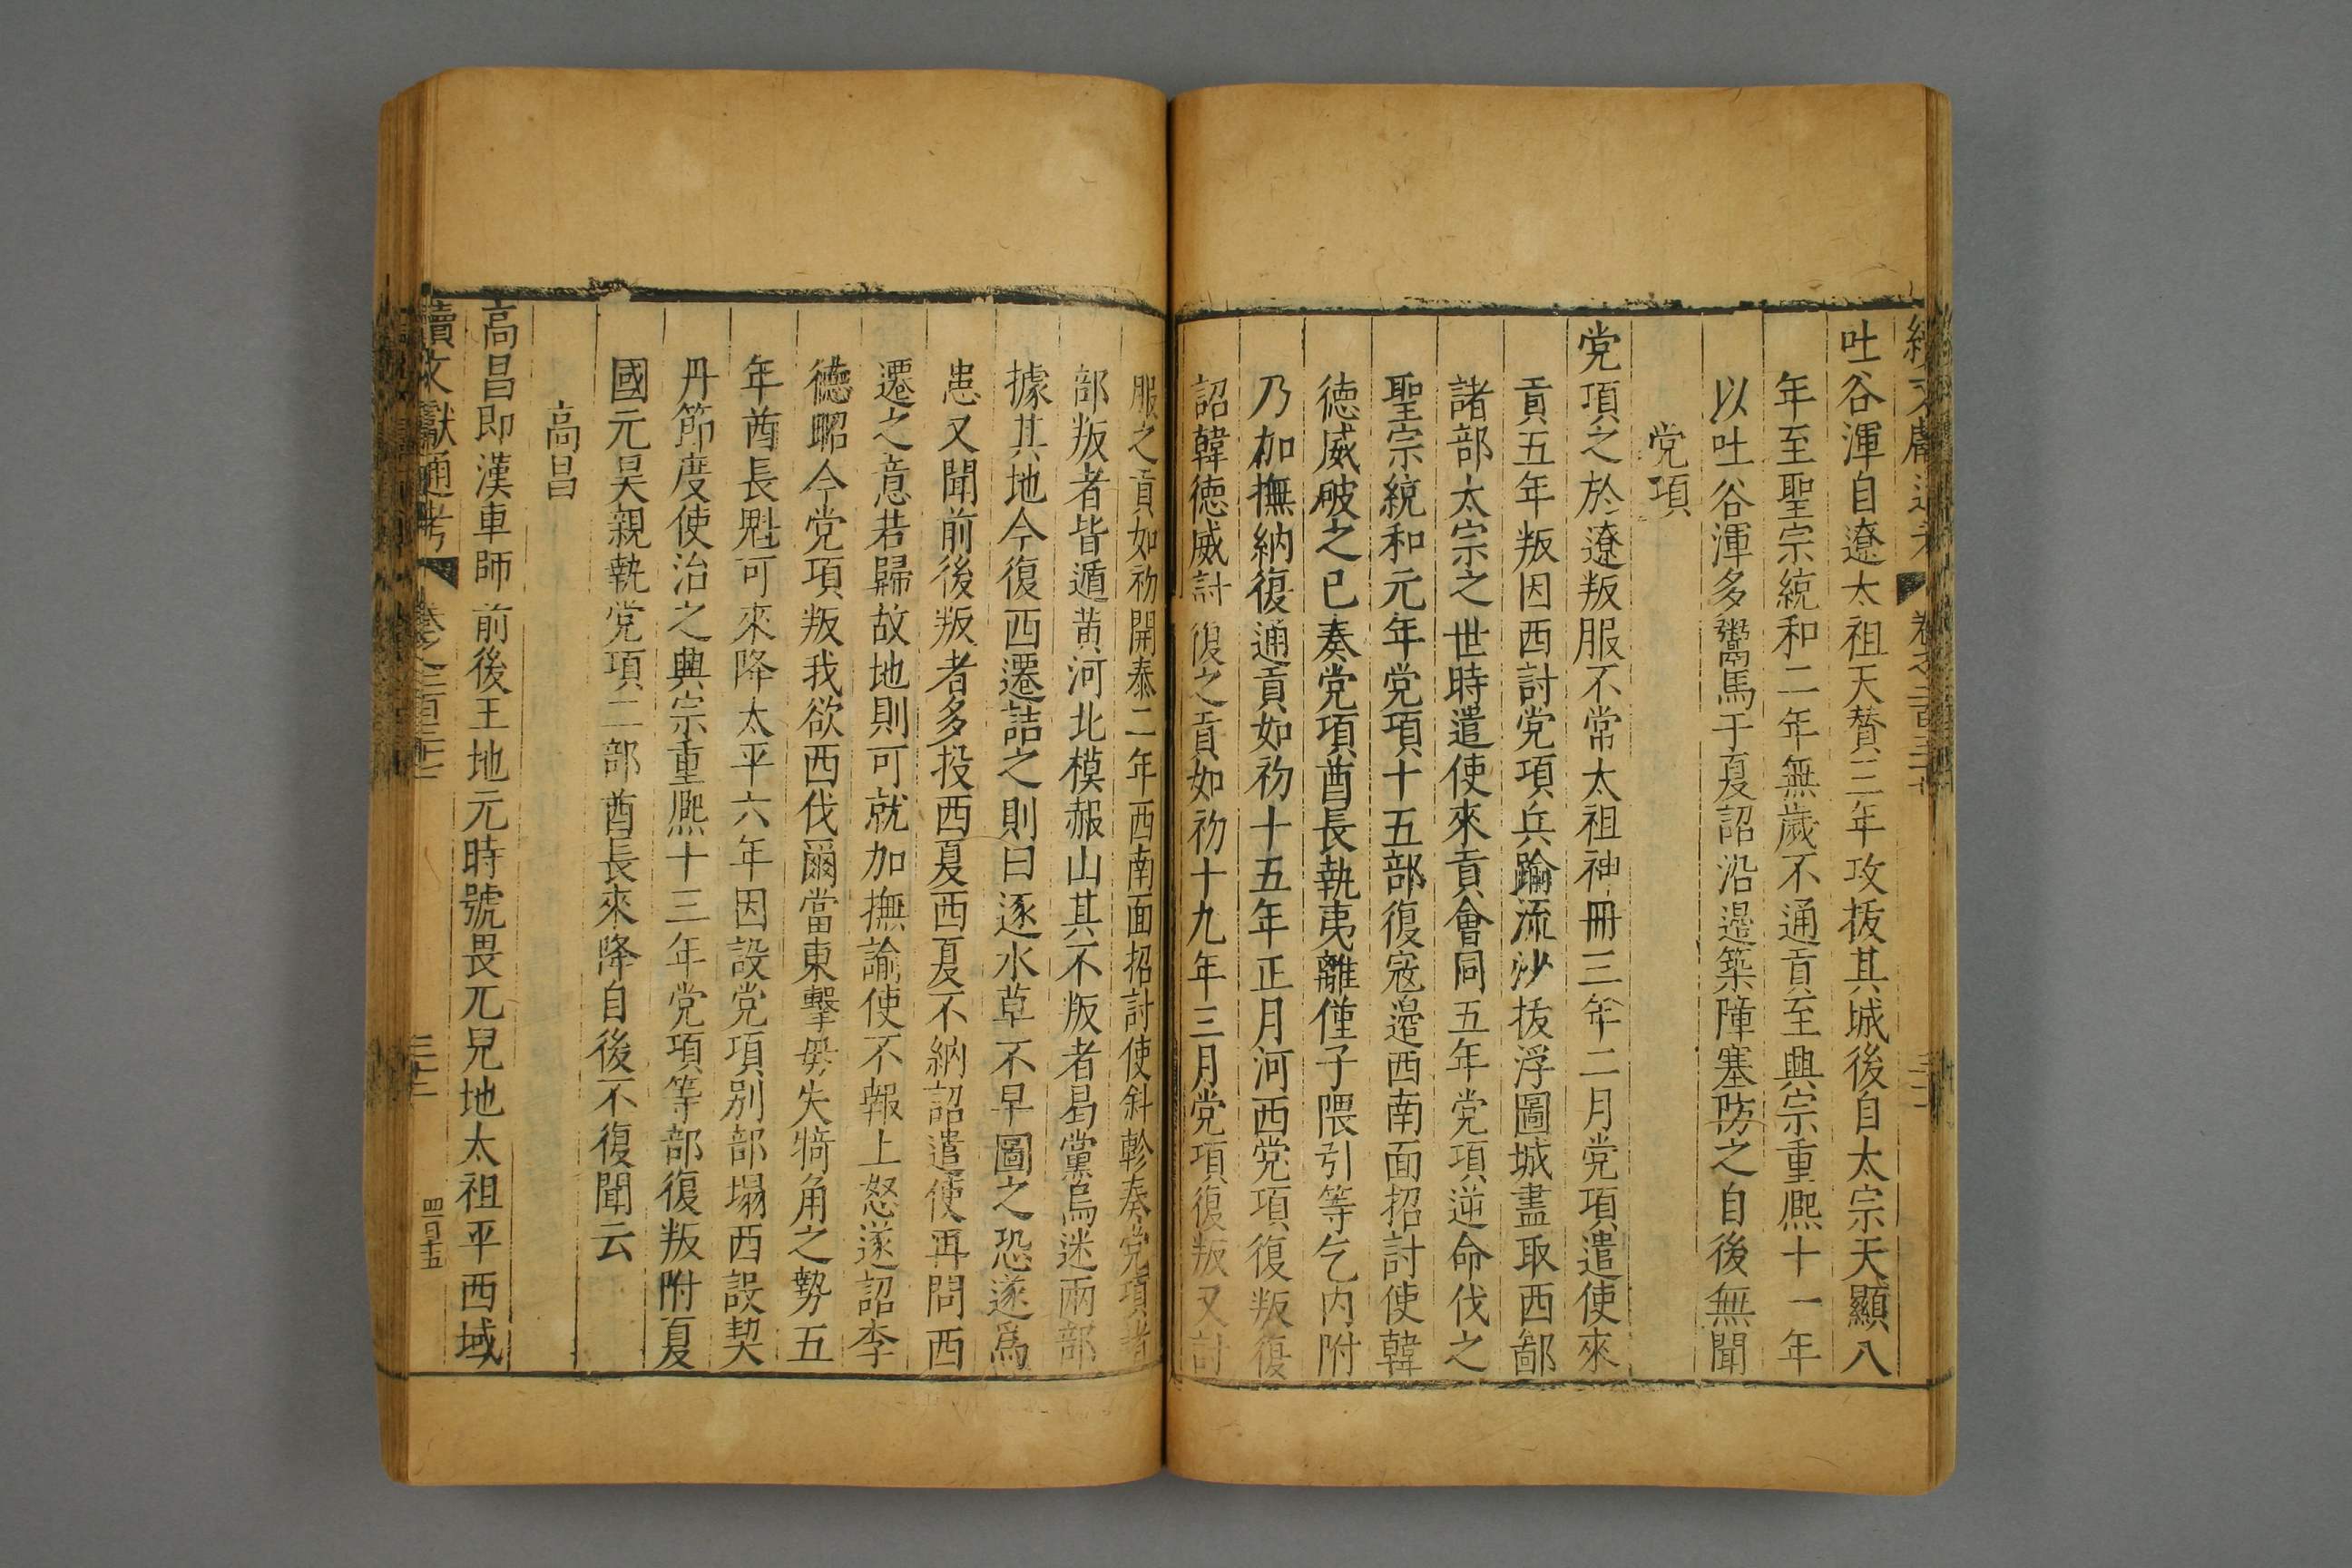 吐谷渾自遼太祖天贊三年攻拔其城後自太宗天顯八
年至聖宗統和二年無歲不通貢至興宗重熈十一年
以吐谷渾多鬻馬于夏詔沿邉築障塞防之自後無聞
党項
党項之於遼叛服不常太祖神冊三年二月党項遣使來
貢五年叛因西討党項兵踰流沙拔浮圖城盡取西鄙
諸部太宗之世時遣使來貢會同五年党項逆命伐之
聖宗統和元年党項十五部復寇邉西南面招討使韓
徳威破之已奏党項酋長執夷離僅子隈引等乞内附
乃加撫納復通貢如初十五年正月河西党項復叛復
詔韓徳威討復之貢如初十九年三月党項復叛又討
服之貢如初開泰二年西南面招討使斜軫奏党項者
部叛者皆遁黄河北模赧山其不叛者曷黨烏迷兩部
據其地今復西遷詰之則曰逐水草不早圖之恐遂爲
患又聞前後叛者多投西夏西夏不納詔遣使再問西
遷之意若歸故地則可就加撫諭使不報上怒遂詔李
德昭今党項叛我欲西伐爾當東擊毋失犄角之勢五
年酋長魁可來降太平六年因設党項别部塌西設契
丹節度使治之興宗重熈十三年党項等部復叛附夏
國元昊親執党項二部酋長來降自後不復聞云
高昌
高昌即漢車師前後王地元時號畏兀兒地太祖平西域
續文獻通考 卷之二百三十七
三十二
四百十五